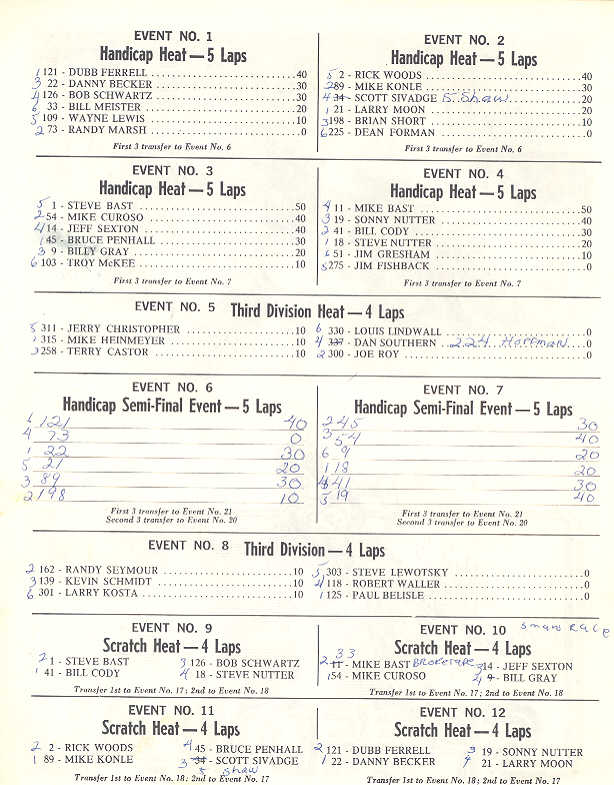 EVENT NO. 1
Handicap Heat — 5 Laps
1 121 - DUBB FERRELL ........ 40
3 22 - DANNY BECKER ........ 30
4 126 - BOB SCHWARTZ ........ 30
6 33 - BILL MEISTER ........ 20
5 109 - WAYNE LEWIS ........ 10
2 73 - RANDY MARSH ........ 0
First 3 transfer to Event No. 6
EVENT NO. 2
Handicap Heat — 5 Laps
5 2 - RICK WOODS ........ 40
2 89 - MIKE KONLE ........ 30
4 34 - SCOTT SIVADGE S. Shaw ........ 20
1 21 - LARRY MOON ........ 20
3 198 - BRIAN SHORT ........ 10
6 225 - DEAN FORMAN ........ 0
First 3 transfer to Event No. 6
EVENT NO. 3
Handicap Heat — 5 Laps
5 1 - STEVE BAST ........ 50
2 54 - MIKE CUROSO ........ 40
4 14 - JEFF SEXTON ........ 40
1 45 - BRUCE PENHALL ........ 30
3 9 - BILLY GRAY ........ 20
6 103 - TROY McKEE ........ 10
First 3 transfer to Event No. 7
EVENT NO. 4
Handicap Heat — 5 Laps
4 11 - MIKE BAST ........ 50
3 19 - SONNY NUTTER ........ 40
2 41 - BILL CODY ........ 30
1 18 - STEVE NUTTER ........ 20
6 51 - JIM GRESHAM ........ 10
5 275 - JIM FISHBACK ........ 0
First 3 transfer to Event No. 7
EVENT NO. 5 Third Division Heat — 4 Laps
5 311 - JERRY CHRISTOPHER ........ 10
1 315 - MIKE HEINMEYER ........ 10
3 258 - TERRY CASTOR ........ 10
6 330 - LOUIS LINDWALL ........ 0
4 337 - DAN SOUTHERN 224 Hoffman ........ 0
2 300 - JOE ROY ........ 0
EVENT NO. 6
Handicap Semi-Final Event — 5 Laps
6 121 40
4 73 0
1 22 30
5 21 20
3 89 30
2 198 10
First 3 transfer to Event No. 21
Second 3 transfer to Event No. 20
EVENT NO. 7
Handicap Semi-Final Event — 5 Laps
2 45 30
3 54 40
6 9 20
1 18 20
4 41 30
5 19 40
First 3 transfer to Event No. 21
Second 3 transfer to Event No. 20
EVENT NO. 8 Third Division — 4 Laps
2 162 - RANDY SEYMOUR ........ 10
3 139 - KEVIN SCHMIDT ........ 10
6 301 - LARRY KOSTA ........ 10
5 303 - STEVE LEWOTSKY ........ 0
4 118 - ROBERT WALLER ........ 0
1 125 - PAUL BELISLE ........ 0
EVENT NO. 9
Scratch Heat — 4 Laps
2 1 - STEVE BAST 3 126 - BOB SCHWARTZ
1 41 - BILL CODY 4 18 - STEVE NUTTER
Transfer 1st to Event No. 17; 2nd to Event No. 18
EVENT NO. 10
Scratch Heat — 4 Laps
33
2 11 - MIKE BAST 3 14 - JEFF SEXTON
1 54 - MIKE CUROSO 4 9 - BILL GRAY
Transfer 1st to Event No. 17; 2nd to Event No. 18
EVENT NO. 11
Scratch Heat — 4 Laps
2 2 - RICK WOODS 4 45 - BRUCE PENHALL
1 89 - MIKE KONLE 3 34 - SCOTT SIVADGE
S Shaw
Transfer 1st to Event No. 18; 2nd to Event No. 17
EVENT NO. 12
Scratch Heat — 4 Laps
2 121 - DUBB FERRELL 3 19 - SONNY NUTTER
1 22 - DANNY BECKER 4 21 - LARRY MOON
Transfer 1st to Event No. 18; 2nd to Event No. 17